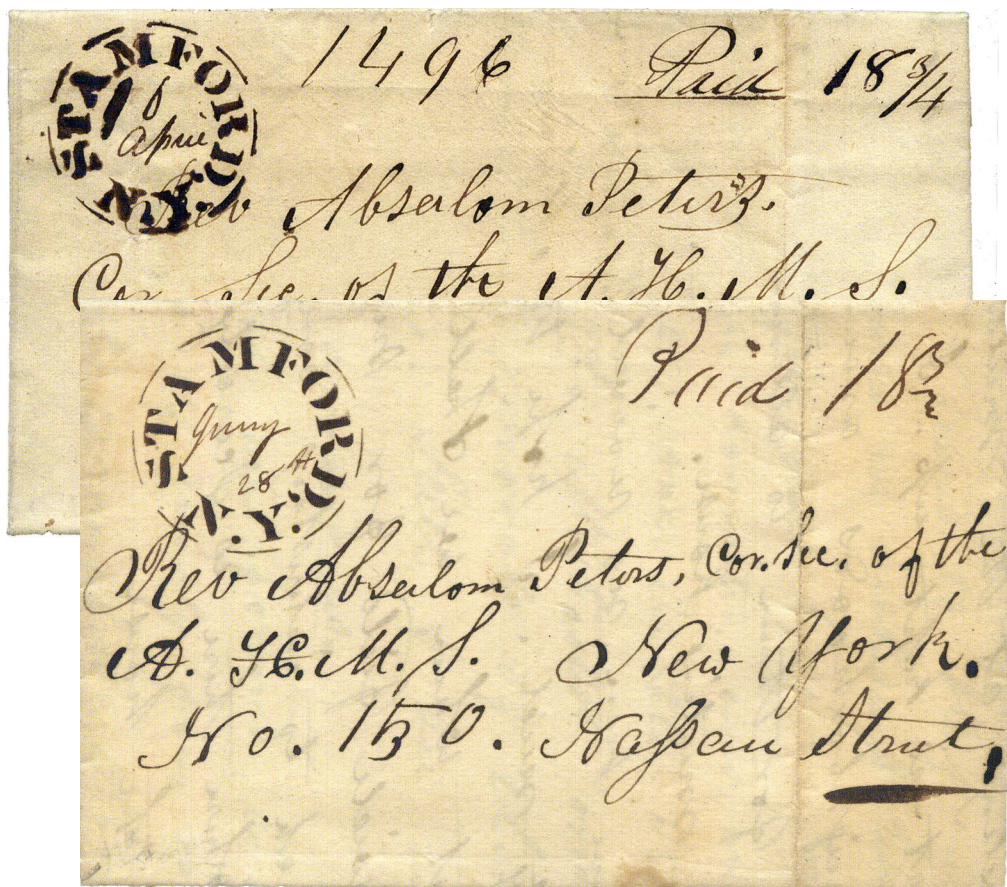 STAMFORD. N.Y.
April
1496 Paid 18 3/4
Rev Absalom Peters.
Cor. Sec. of the A. H. M. S.
STAMFORD. N.Y.
28th
Paid 18 3/4
Rev Absalom Peters, Cor. Sec. of the
A. H. M. S. New York.
No. 150. Naſsau Street,